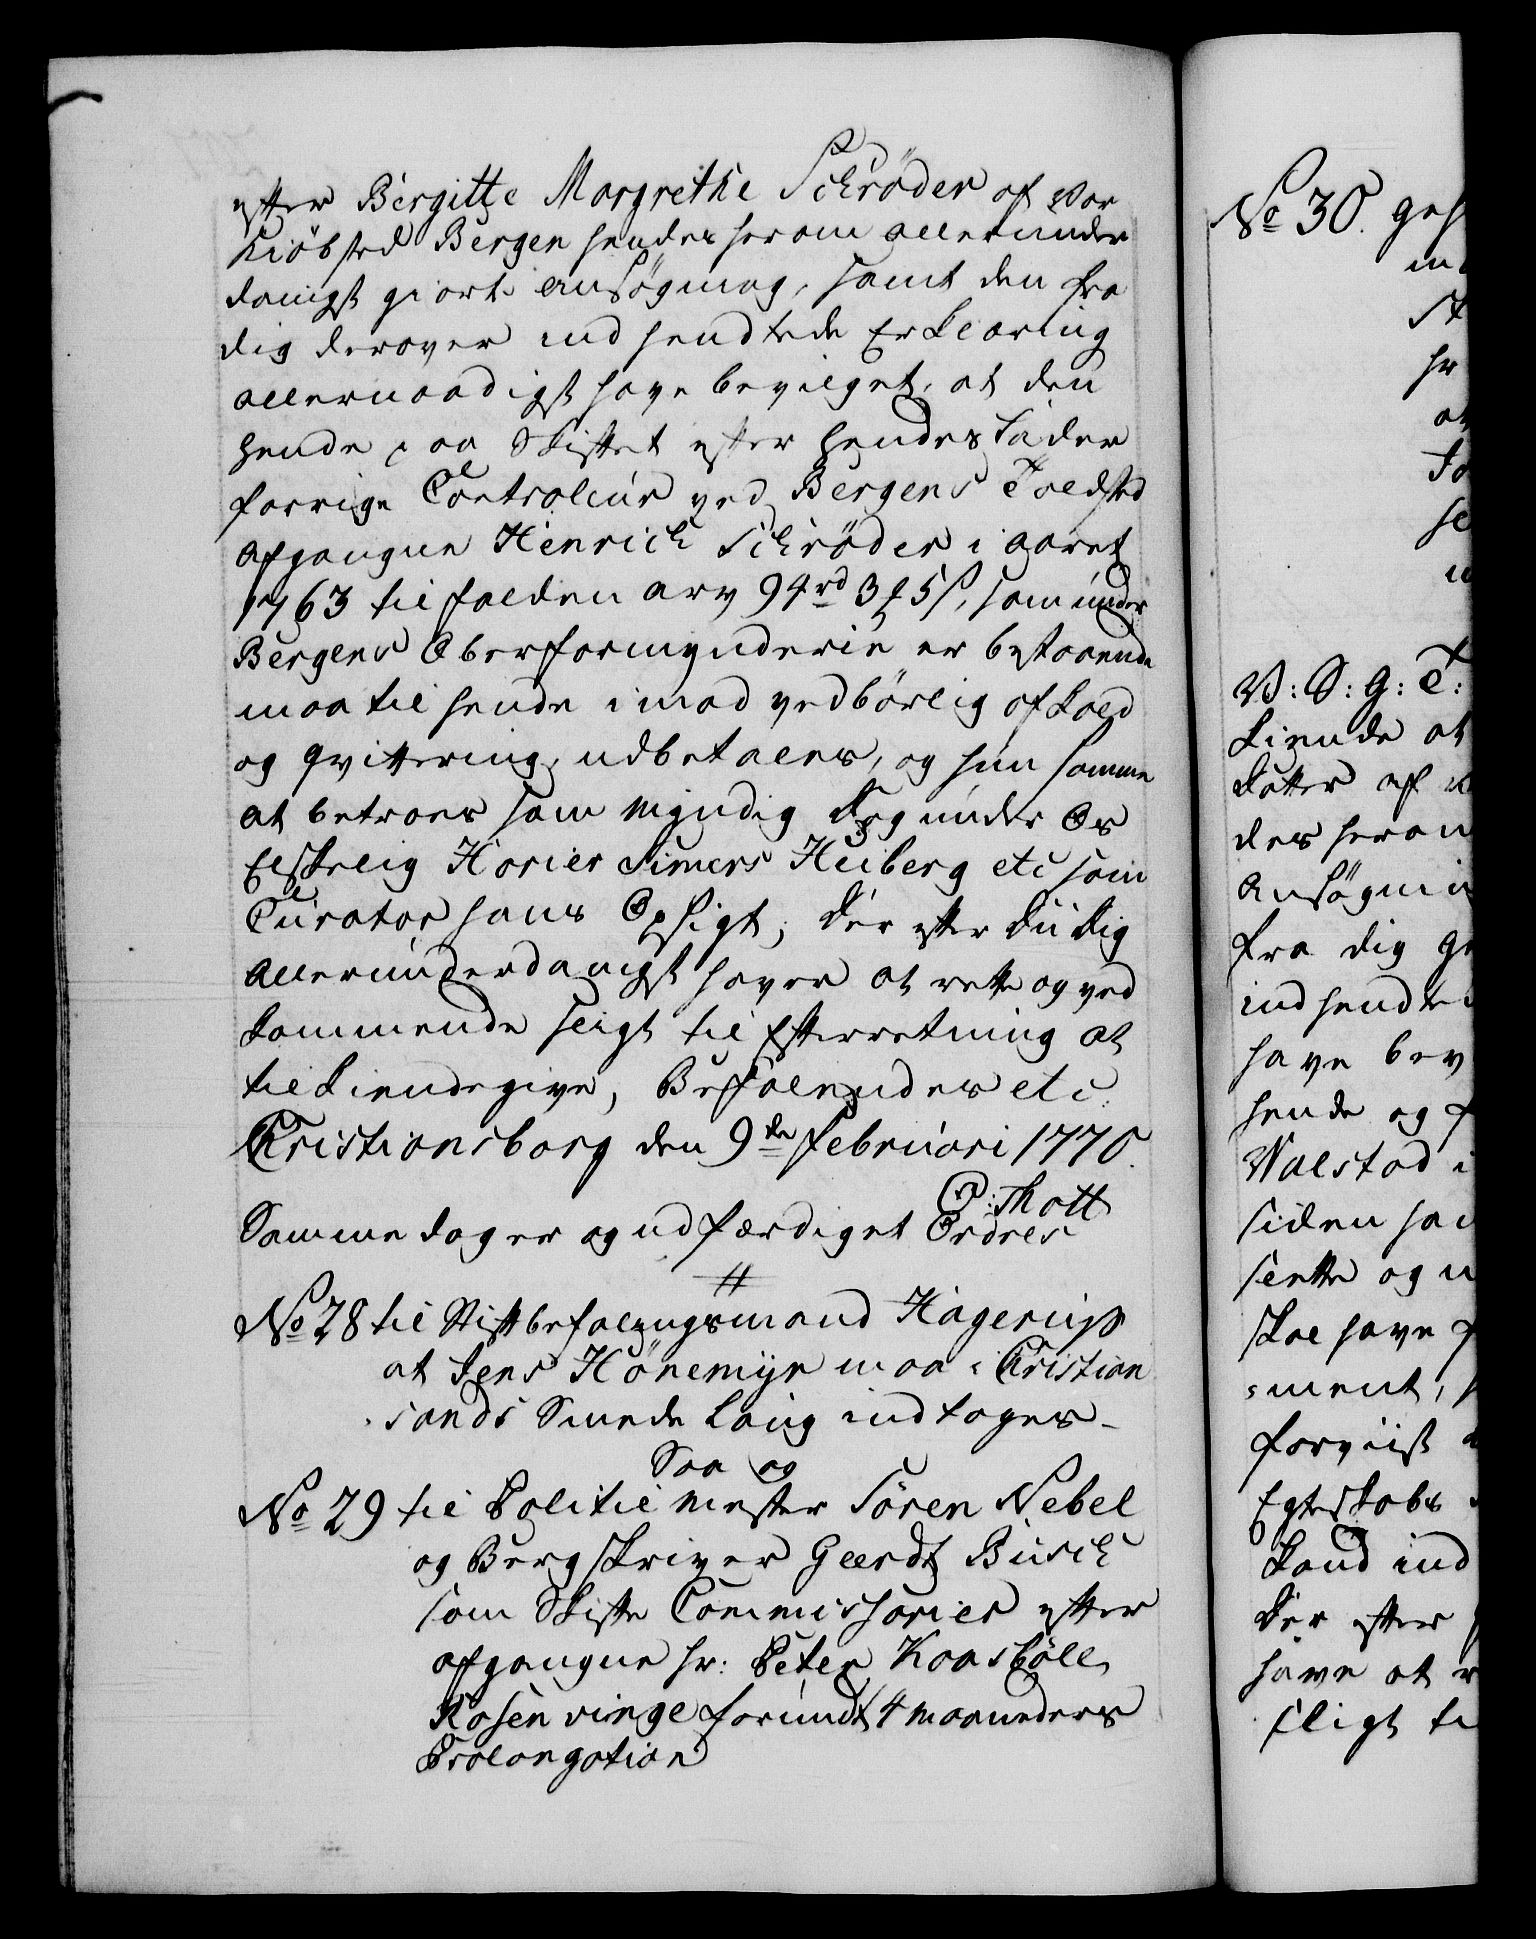 efter Bergitte Margrethe Schrøder af vor
Kiøbsted Bergen hendes herom allerunder
danigst giorte ansøgning, samt den fra
dig derover indsendtede Erklæring
allernaadigst have bevilget, at den
hende paa Skiftet efter hendes Fader
forrige Controleur ved Bergens Toldsted
afgangne Henrich Schrøder i aaret
1763 tilfalden arv 94 rd 3 ƒ 5 s, som under
Bergens Oberformynderie er bestaaende
maa til hende imod vedbørlig afkald
og qvittering, udbetales, og hun samme
at betroes som myndig dog under Os
Elskelig Horier Simers Heiberg etc som
Curator hans Opsigt; Der efter du dig
allerunderdanigst haver at rette og ved
kommende sligt til Efterretning at
tilkiendegive, Befalendes etc.
Christiansborg den 9de Februari 1770.
O: Thott
Samme dag er og udfærdiget Ordres
No 28 til Stiftbefalingsmand Hagerup
at Jens Hønemyr maa i Christian
sands Smede Laug indtages -
Saa og
No 29 til Politie mester Søren Nebel
og Bergskriver Geerdt Busch
som Skifte Commissarier efter
afgangne hr: Peter Kaasbøll
Rosenvinge forundt 4 maaneders
Prolongation
No 30.
V: S: G: T:
kiende at
datter af
des herom
Ansøgnin
fra dig
indsendte
have bev
hende og
Walstad i
siden
sette og
skal have
ment,
forviist
Egteskabs
Land ind
Der efter
have at
sligt